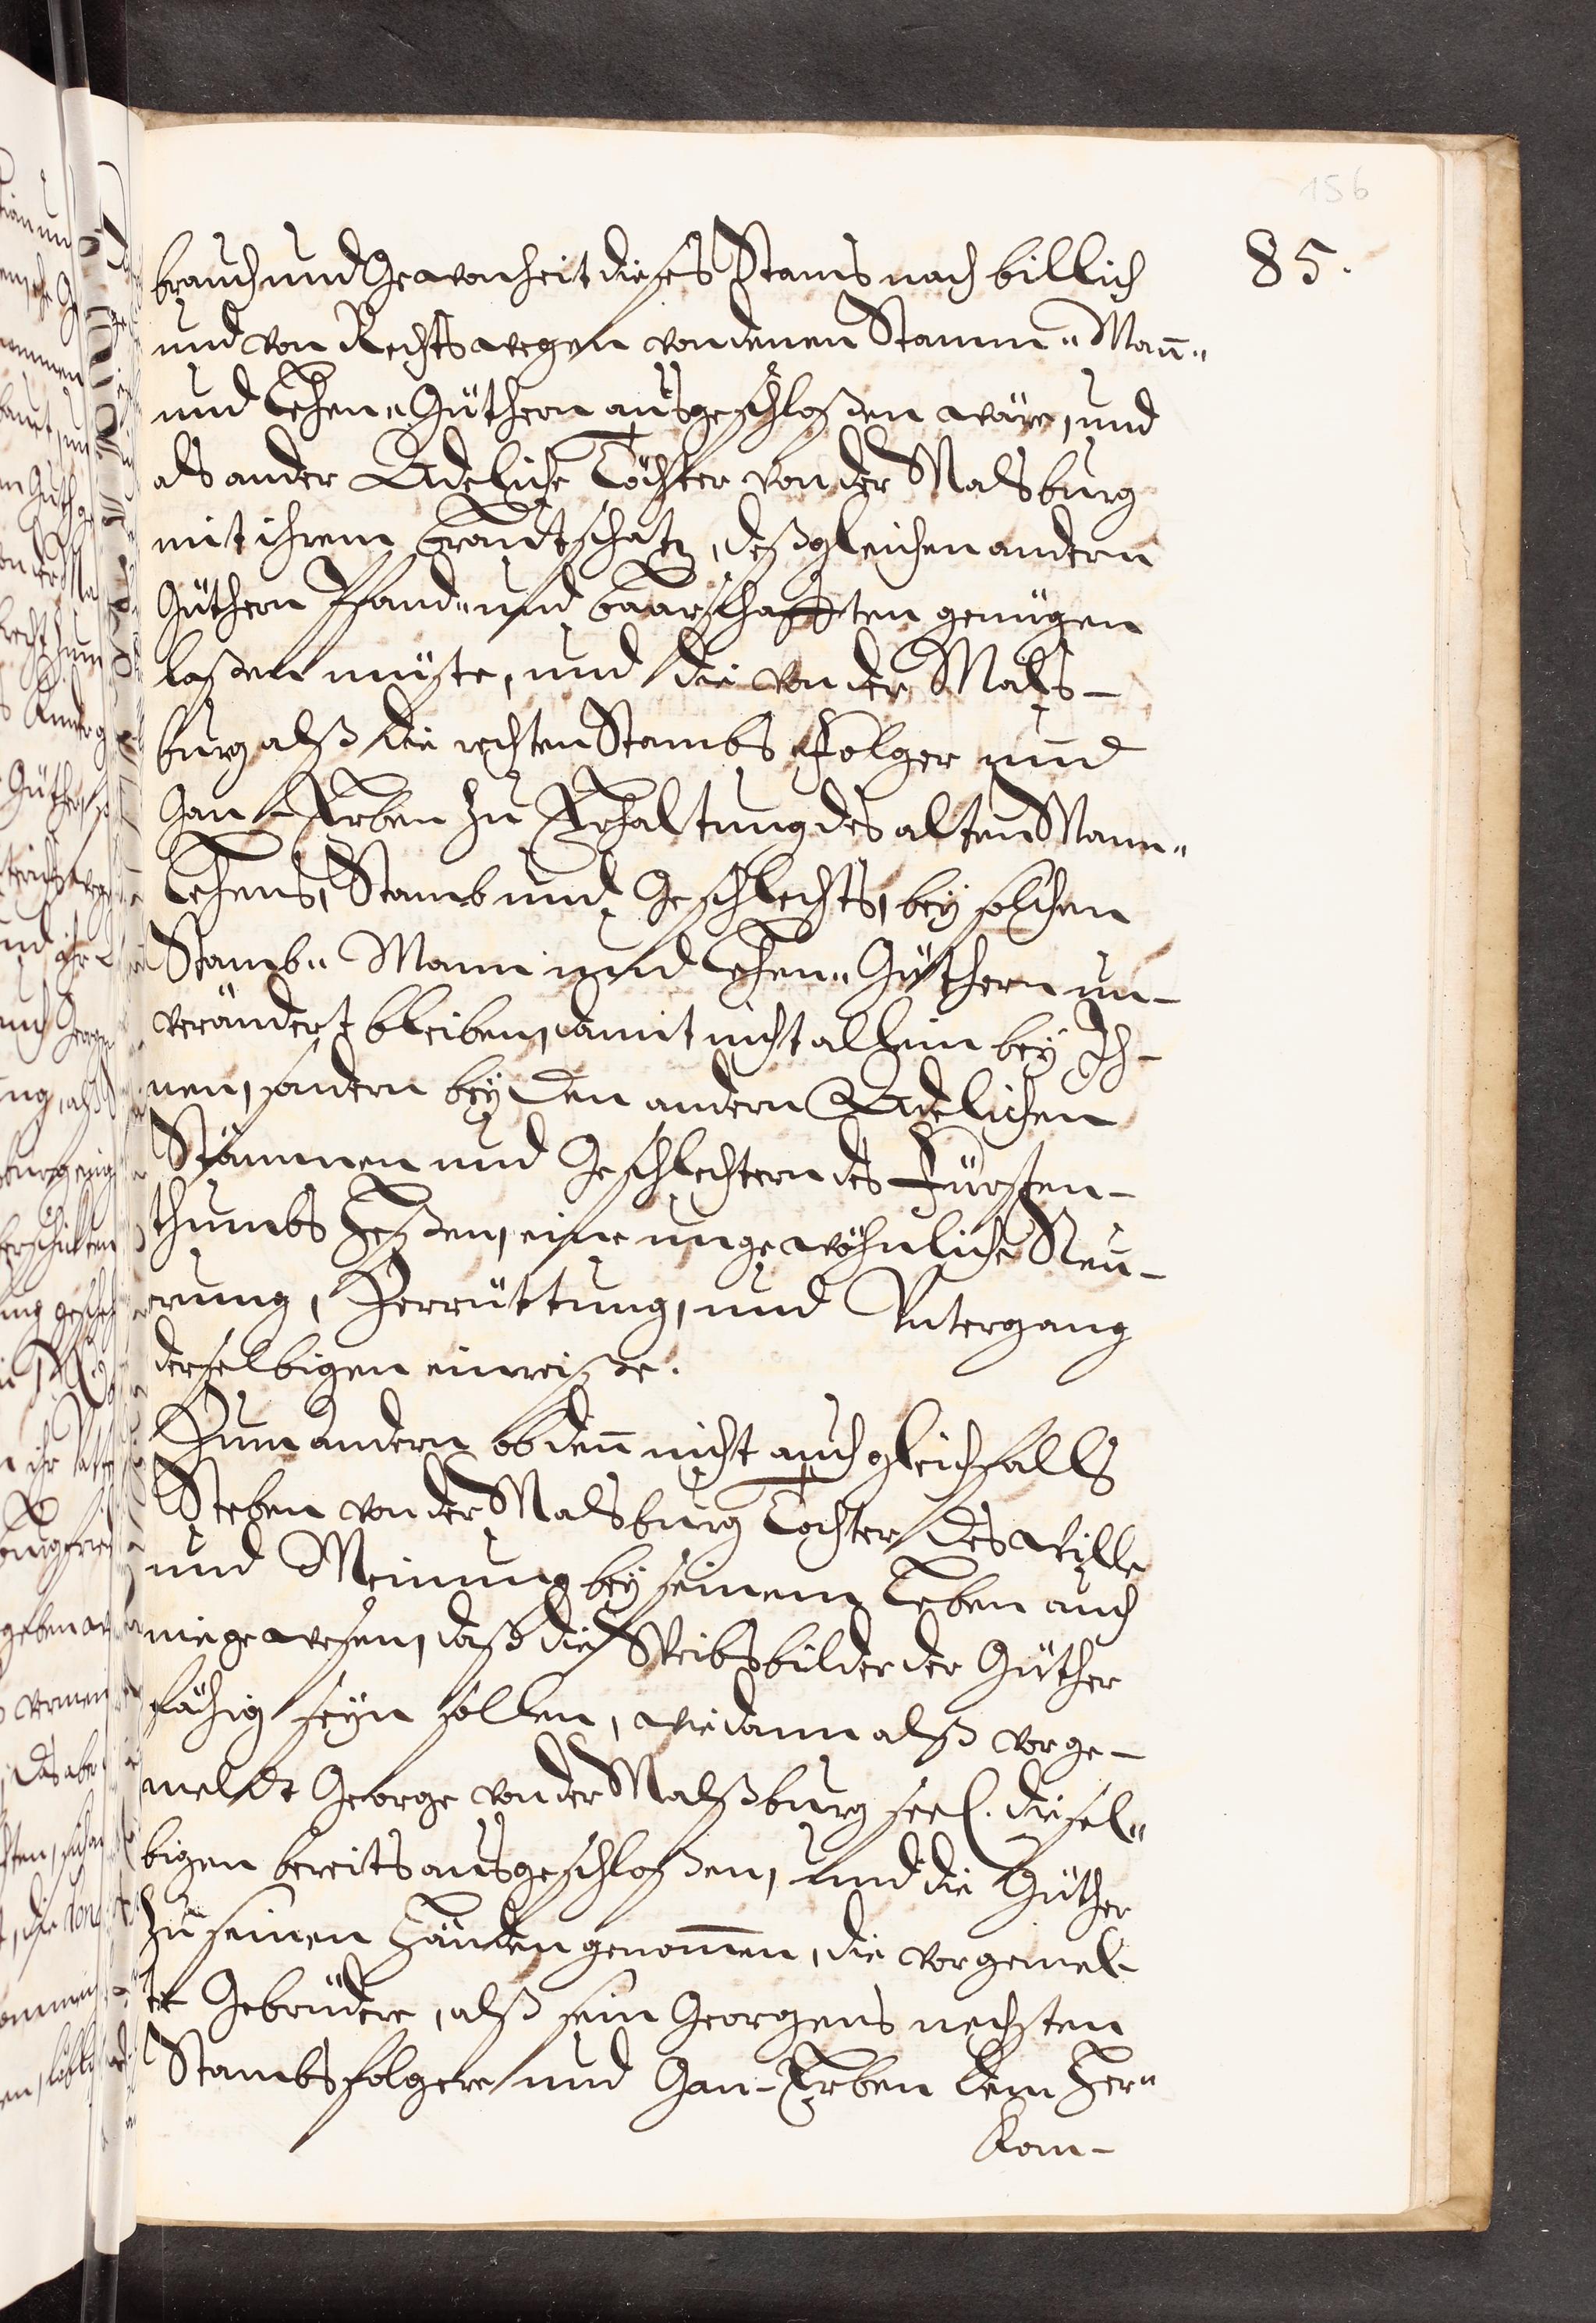 156
85.
brauch und Gewonheit dieses Stams nach billich
und von Rechts wegen von denen Stamm„ Man̄„
und Lehen„ Güthern ausgeschloßen wäre, und
als ander Adeliche Töchter von der Malsburg
mit ihrem Brautschatz, deßgleichen andern
Güthern Pfand„ und Baarschafften genügen
laßen müste, und die von der Mals-
burg alß die rechten Stambs Folger und
Gan-Erben zu Erhaltung des alten Mann„
Lehens, Stamb und Geschlechts, bey solchen
Stamb„ Mann und Lehen„ Güthern un-
verändert bleiben, damit nicht allein bey Ih-
nen, sondern bey den andern Adelichen
Stämmen und Geschlechtern des Fürsten-
thumbs Heßen, eine ungewöhnliche Neu-
erung, Zerrüttung, und Untergang
derselbigen einreiße.
Zum andern ob den̄ nicht auch gleichfalls
Steben von der Malsburg Tochter des wille
und Meinung bey seinem Leben auch
nie gewesen, daß die Weibsbilder der Güther
fähig seyn sollen, wie dann alß vorge-
meldt George von der Malßburg seel. diesel„
bigen bereits ausgeschloßen, und die Güther
zu seinen Händen genom̄en, die vorgemel-
te Gebrüdere, alß sein Georgens nechsten
Stambsfolgere und Gan-Erben dem Her„
kom-